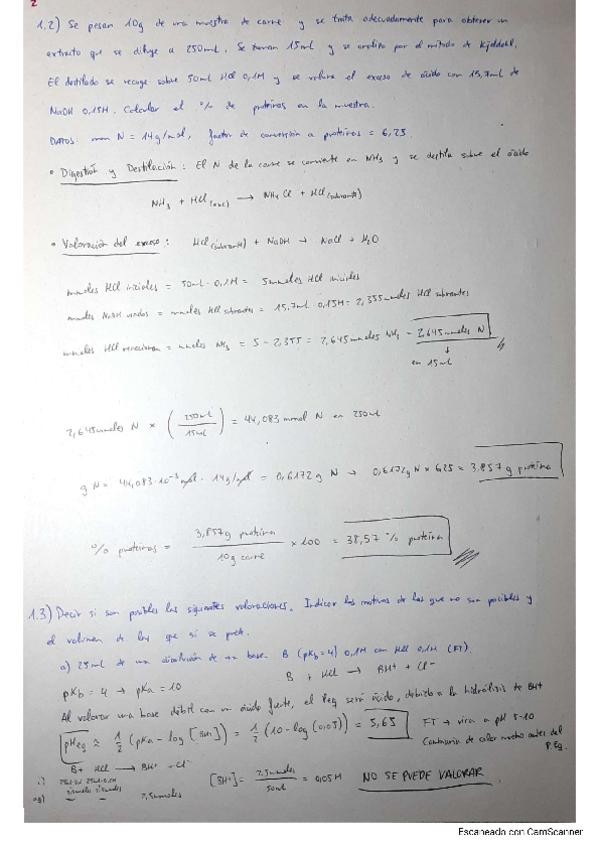 2
1.2) Se pesan 10g de una muestra de carne y se trata adecuadamente para obtener un
extracto que se diluye a 250mL. Se toman 15mL y se analiza por el método de Kjeldahl.
El destilado se recoge sobre 50mL HCl 0,1M y se valora el exceso de ácido con 15,7mL de
NaOH 0,15M. Calcular el % de proteínas en la muestra.
DATOS: mm N = 14g/mol, factor de conversión a proteínas = 6,25
• Digestión y Destilación: El N de la carne se convierte en NH3 y se destila sobre el ácido
NH3 + HCl (exc) → NH4Cl + HCl (sobrante)
• Valoración del exceso: HCl (sobrante) + NaOH → NaCl + H2O
mmoles HCl iniciales = 50mL · 0,1M = 5mmoles HCl iniciales
mmoles NaOH usados = mmoles HCl sobrantes = 15,7mL · 0,15M = 2,355mmoles HCl sobrantes
mmoles HCl reaccionan = mmoles NH3 = 5 - 2,355 = 2,645mmoles NH3 = 2,645mmoles N
↓
en 15mL
2,645mmoles N × (250mL / 15mL) = 44,083 mmol N en 250mL
g N = 44,083·10⁻³ mol · 14g/mol = 0,6172g N → 0,6172g N × 6,25 = 3,857g proteína
% proteínas = 3,857g proteína / 10g carne × 100 = 38,57 % proteína
1.3) Decir si son posibles las siguientes valoraciones. Indicar los motivos de las que no son posibles y
el volumen de las que sí se puede.
a) 25mL de una disolución de una base B (pKb=4) 0,1M con HCl 0,1M (FT).
B + HCl → BH⁺ + Cl⁻
pKb = 4 → pKa = 10
Al valorar una base débil con un ácido fuerte, el Peq será ácido, debido a la hidrólisis de BH⁺
pHeq ≈ 1/2 (pKa - log [BH⁺]) = 1/2 (10 - log(0,05)) = 5,65
FT → vira a pH 8-10
Cambiaría de color mucho antes del
P.Eq.
B + HCl → BH⁺ + Cl⁻
i)
eq)
2,5mmoles
[BH⁺] = 2,5mmoles / 50mL = 0,05M NO SE PUEDE VALORAR
Escaneado con CamScanner